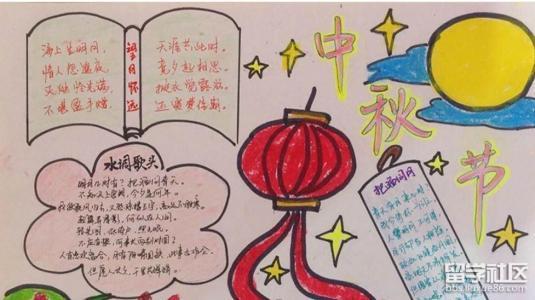 海上生明月，
情人怨遥夜，
灭烛怜光满，
不堪盈手赠，
望月怀远
天涯共此时。
竟夕起相思。
披衣觉露滋。
还寝梦佳期。
中秋节
水调歌头
明月几时有？把酒问青天。
不知天上宫阙，今夕是何年。
我欲乘风归去，又恐琼楼玉宇，高处不胜寒。
起舞弄清影，何似在人间。
转朱阁，低绮户，照无眠。
不应有恨，何事长向别时圆？
人有悲欢离合，月有阴晴圆缺，此事古难全。
但愿人长久，千里共婵娟。
把酒问月
青天有月来几时
我今停杯一问之
人攀明月不可得
月行却与人相随
留学社区
bbs.liuxue86.com